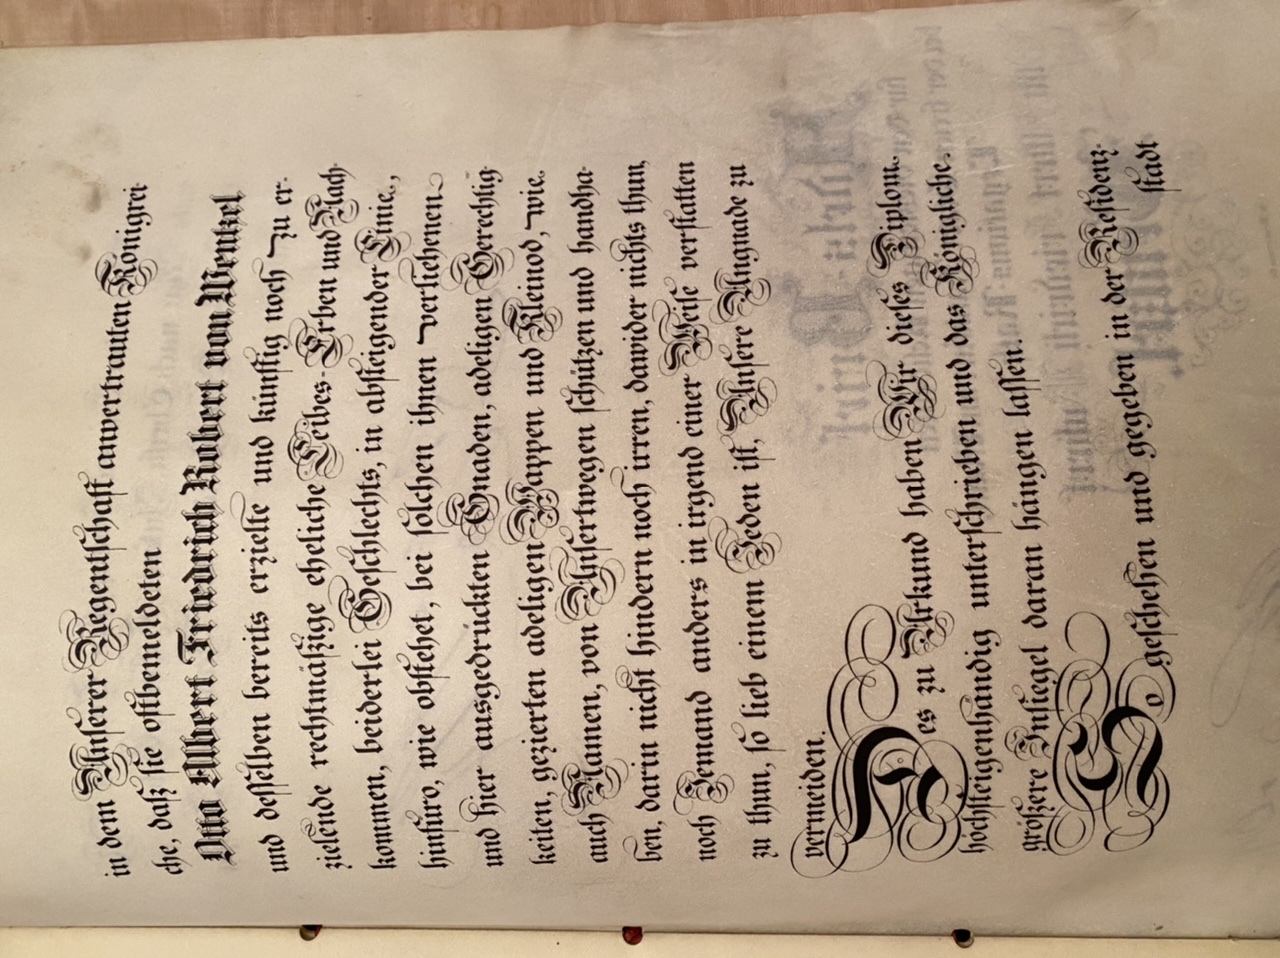 in dem Unserer Regentschaft anvertrauten Königrei-
che, daß sie oftbemeldeten
Otto Albert Friedrich Robert von Wentzel
und desselben bereits erzielte und künftig noch zu er-
zielende rechtmäßige eheliche Leibes-Erben und Nach-
kommen, beiderlei Geschlechts, in absteigender Linie,
hinfüro, wie obstehet, bei solchen ihnen verliehenen
und hier ausgedrückten Gnaden, adeligen Gerechtig-
keiten, gezierten adeligen Wappen und Kleinod, wie
auch Namen, von Unsertwegen schützen und handha-
ben, darin nicht hindern noch irren, dawider nichts thun,
noch Jemand anders in irgend einer Weise verstatten
zu thun, so lieb einem Jeden ist, Unsere Ungnade zu
vermeiden.
Des zu Urkund haben Wir dieses Diplom
höchsteigenhändig unterschrieben und das Königliche
größere Insiegel daran hängen lassen.
So geschehen und gegeben in der Residenz-
stadt